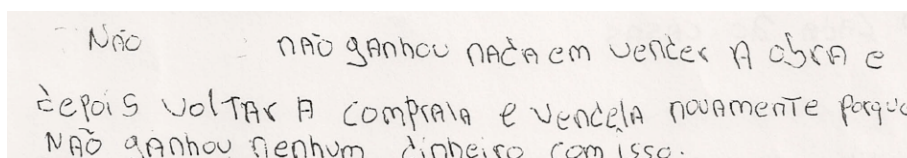 Não não ganhou nada em vender a obra e
depois voltar a comprala e vendela novamente porque
não ganhou nenhum dinheiro com isso.